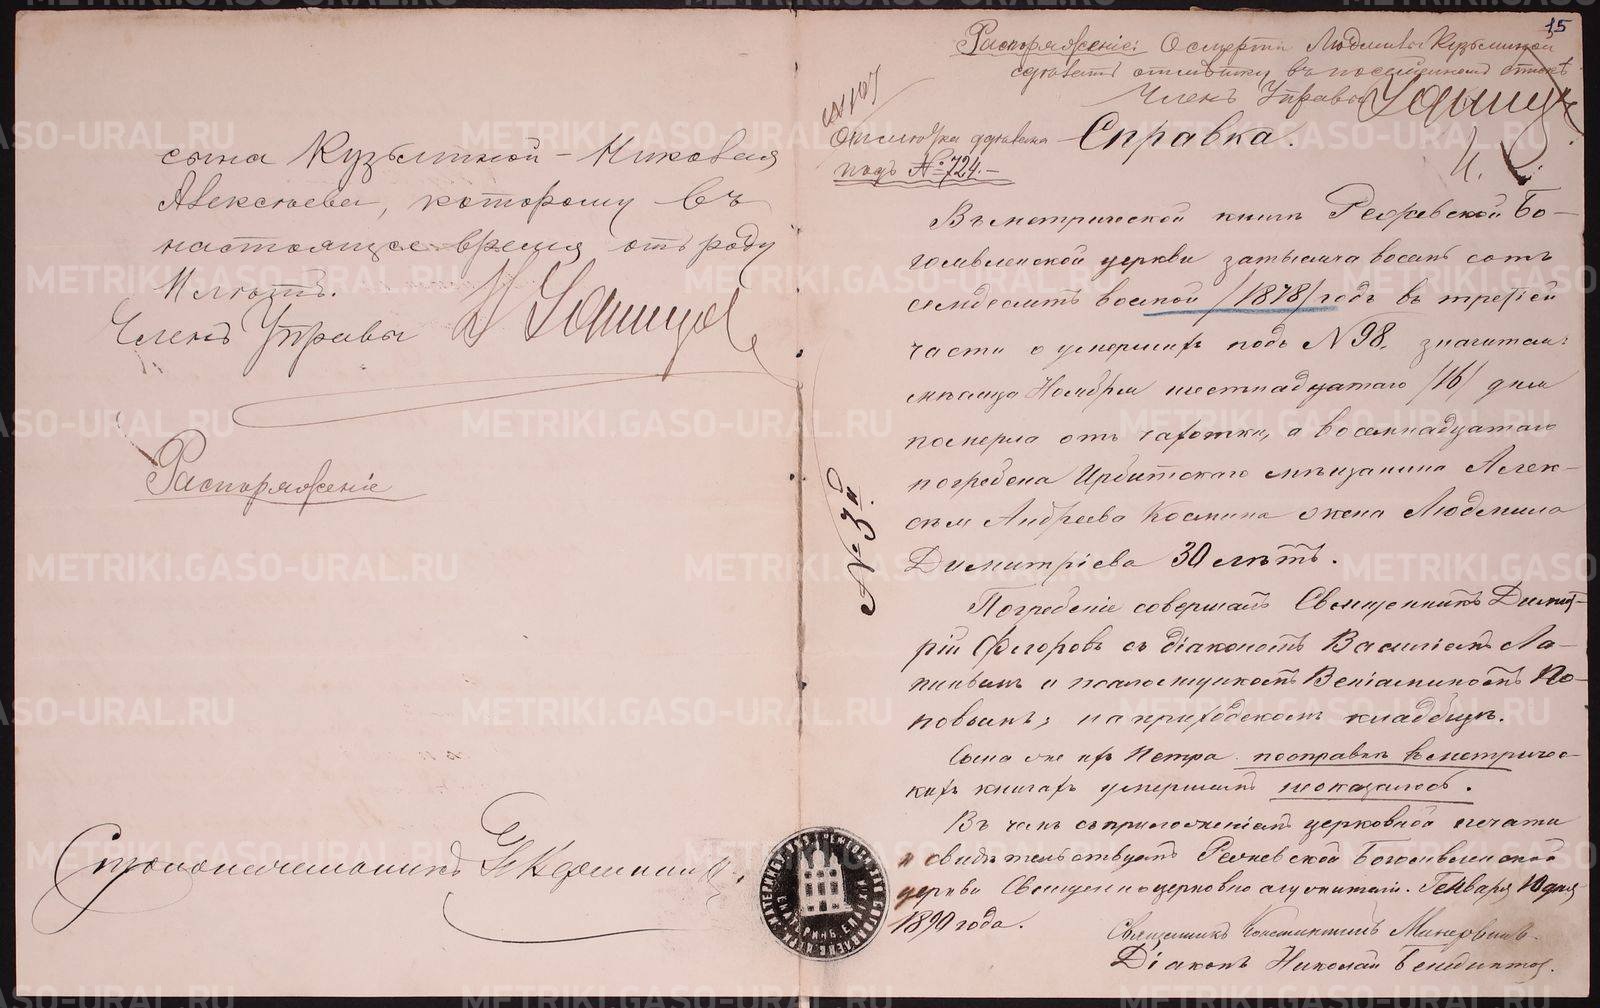 сына Кузьминой - Николая
Алексѣева, которому въ
настоящее время отъ роду
11 лѣтъ.
Членъ Управы
Распоряженіе
Столоначальникъ
15
Распоряженіе: О смерти Людмилы Кузьминой
сдѣлать отмѣтку въ посемейномъ спискѣ
Членъ Управы
Отмѣтка сдѣлана
подъ № 724.-
Справка.
Въ метрической книгѣ Режевской Бо-
гоявленской церкви за тысяча восемь сотъ
семдесятъ восьмой /1878/ годъ въ третіей
части о умершихъ подъ N 98. значится:
мѣсяца Ноября шестнадцатаго /16/ дня
померла отъ чахотки, а восемнадцатаго
погребена Ирбитскаго мѣщанина Алек-
сѣя Андреева Косьмина жена Людмила
Димитріева 30 лѣтъ.
Погребеніе совершалъ Священникъ Димит-
рій Флоровъ съ діакономъ Василіемъ Ла-
пинымъ и псаломщикомъ Веніаминомъ По-
повымъ, на приходскомъ кладбищѣ.
Сына же ихъ Петра по справкѣ въ метричес-
кихъ книгахъ умершимъ не оказалось.
Въ чемъ съ приложеніемъ церковной печати
и свидѣтельствуетъ Режевской Богоявленской
церкви Священноцерковнослужители. Генваря 10 дня
1890 года.
Священникъ Константинъ
Діаконъ Николай
№ 3й.
METRIKI.GASO-URAL.RU